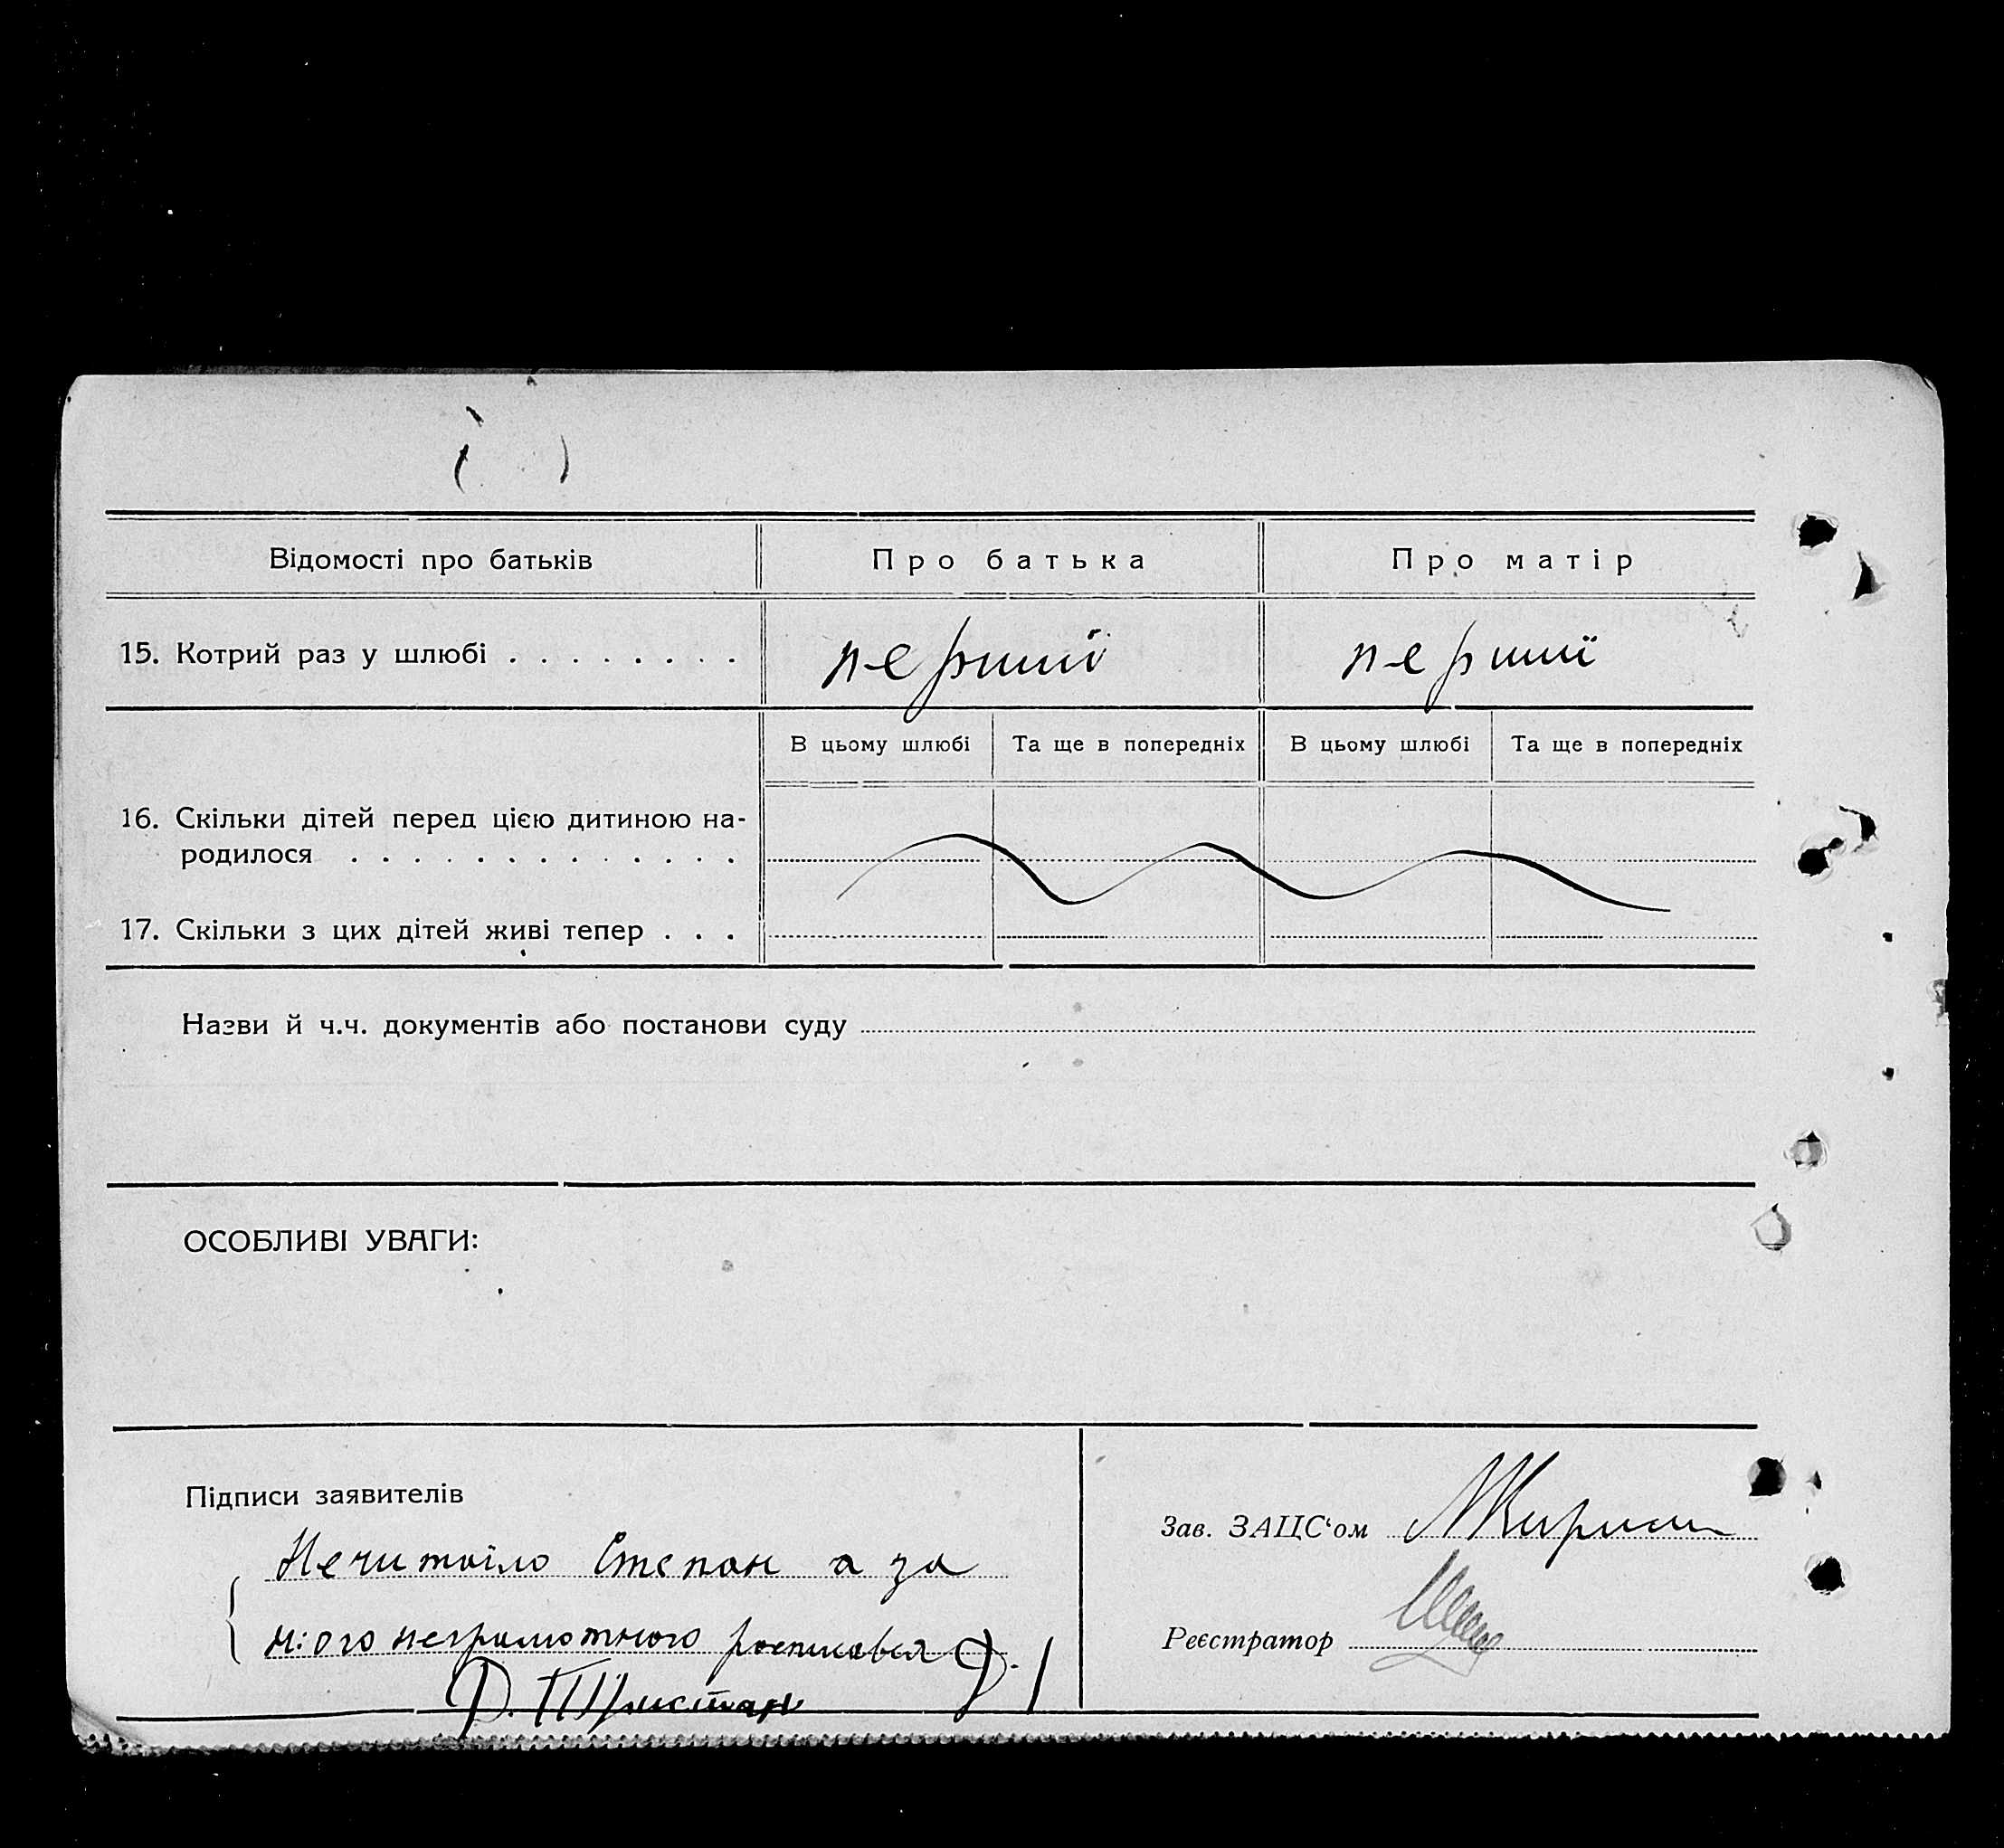 Відомості про батьків
Про батька
Про матір
15. Котрий раз у шлюбі . . . . . . . .
перший
перший
В цьому шлюбі
Та ще в попередніх
В цьому шлюбі
Та ще в попередніх
16. Скільки дітей перед цією дитиною на-
родилося . . . . . . . . . . . . .
17. Скільки з цих дітей живі тепер . . .
Назви й ч.ч. документів або постанови суду
ОСОБЛИВІ УВАГИ:
Підписи заявителів
Нечитайло Степан а за
його неграмотного росписався
Зав. ЗАЦС‘ом
Реєстратор